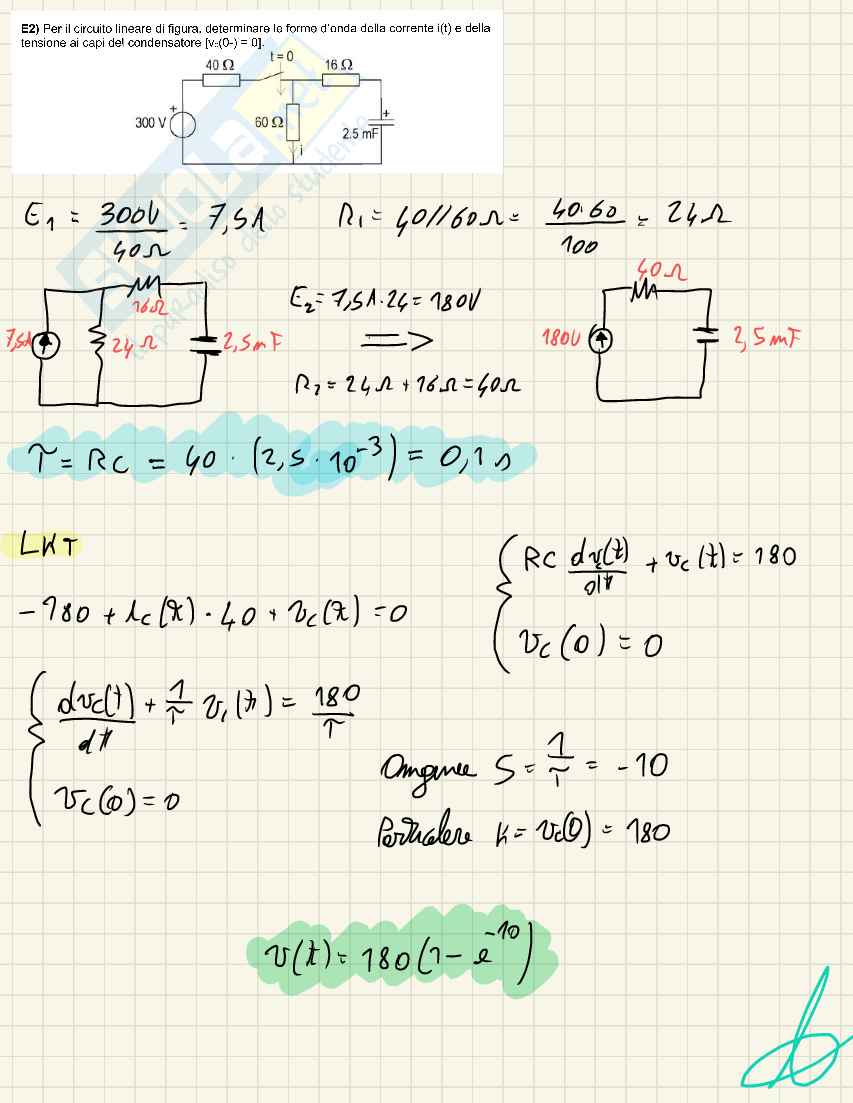 E2) Per il circuito lineare di figura, determinare le forme d'onda della corrente i(t) e della
tensione ai capi del condensatore [vc(0-) = 0].
40 Ω t=0 16 Ω
+ +
300 V 60 Ω 2.5 mF
i
E1 = 300V/40Ω = 7,5A R1 = 40//60Ω = 40·60/100 = 24Ω
16Ω 40Ω
7,5A 24Ω 2,5mF E2 = 7,5A·24 = 180V ⟹ 180V 2,5mF
R2 = 24Ω + 16Ω = 40Ω
τ = RC = 40 · (2,5·10⁻³) = 0,1 s
LKT
-180 + ic(t) · 40 + vc(t) = 0
{ RC dvc(t)/dt + vc(t) = 180
vc(0) = 0
{ dvc(t)/dt + 1/τ vc(t) = 180/τ
vc(0) = 0
Omogenea S = 1/τ = -10
Particolare K = vc(0) = 180
v(t) = 180(1 - e⁻¹⁰)